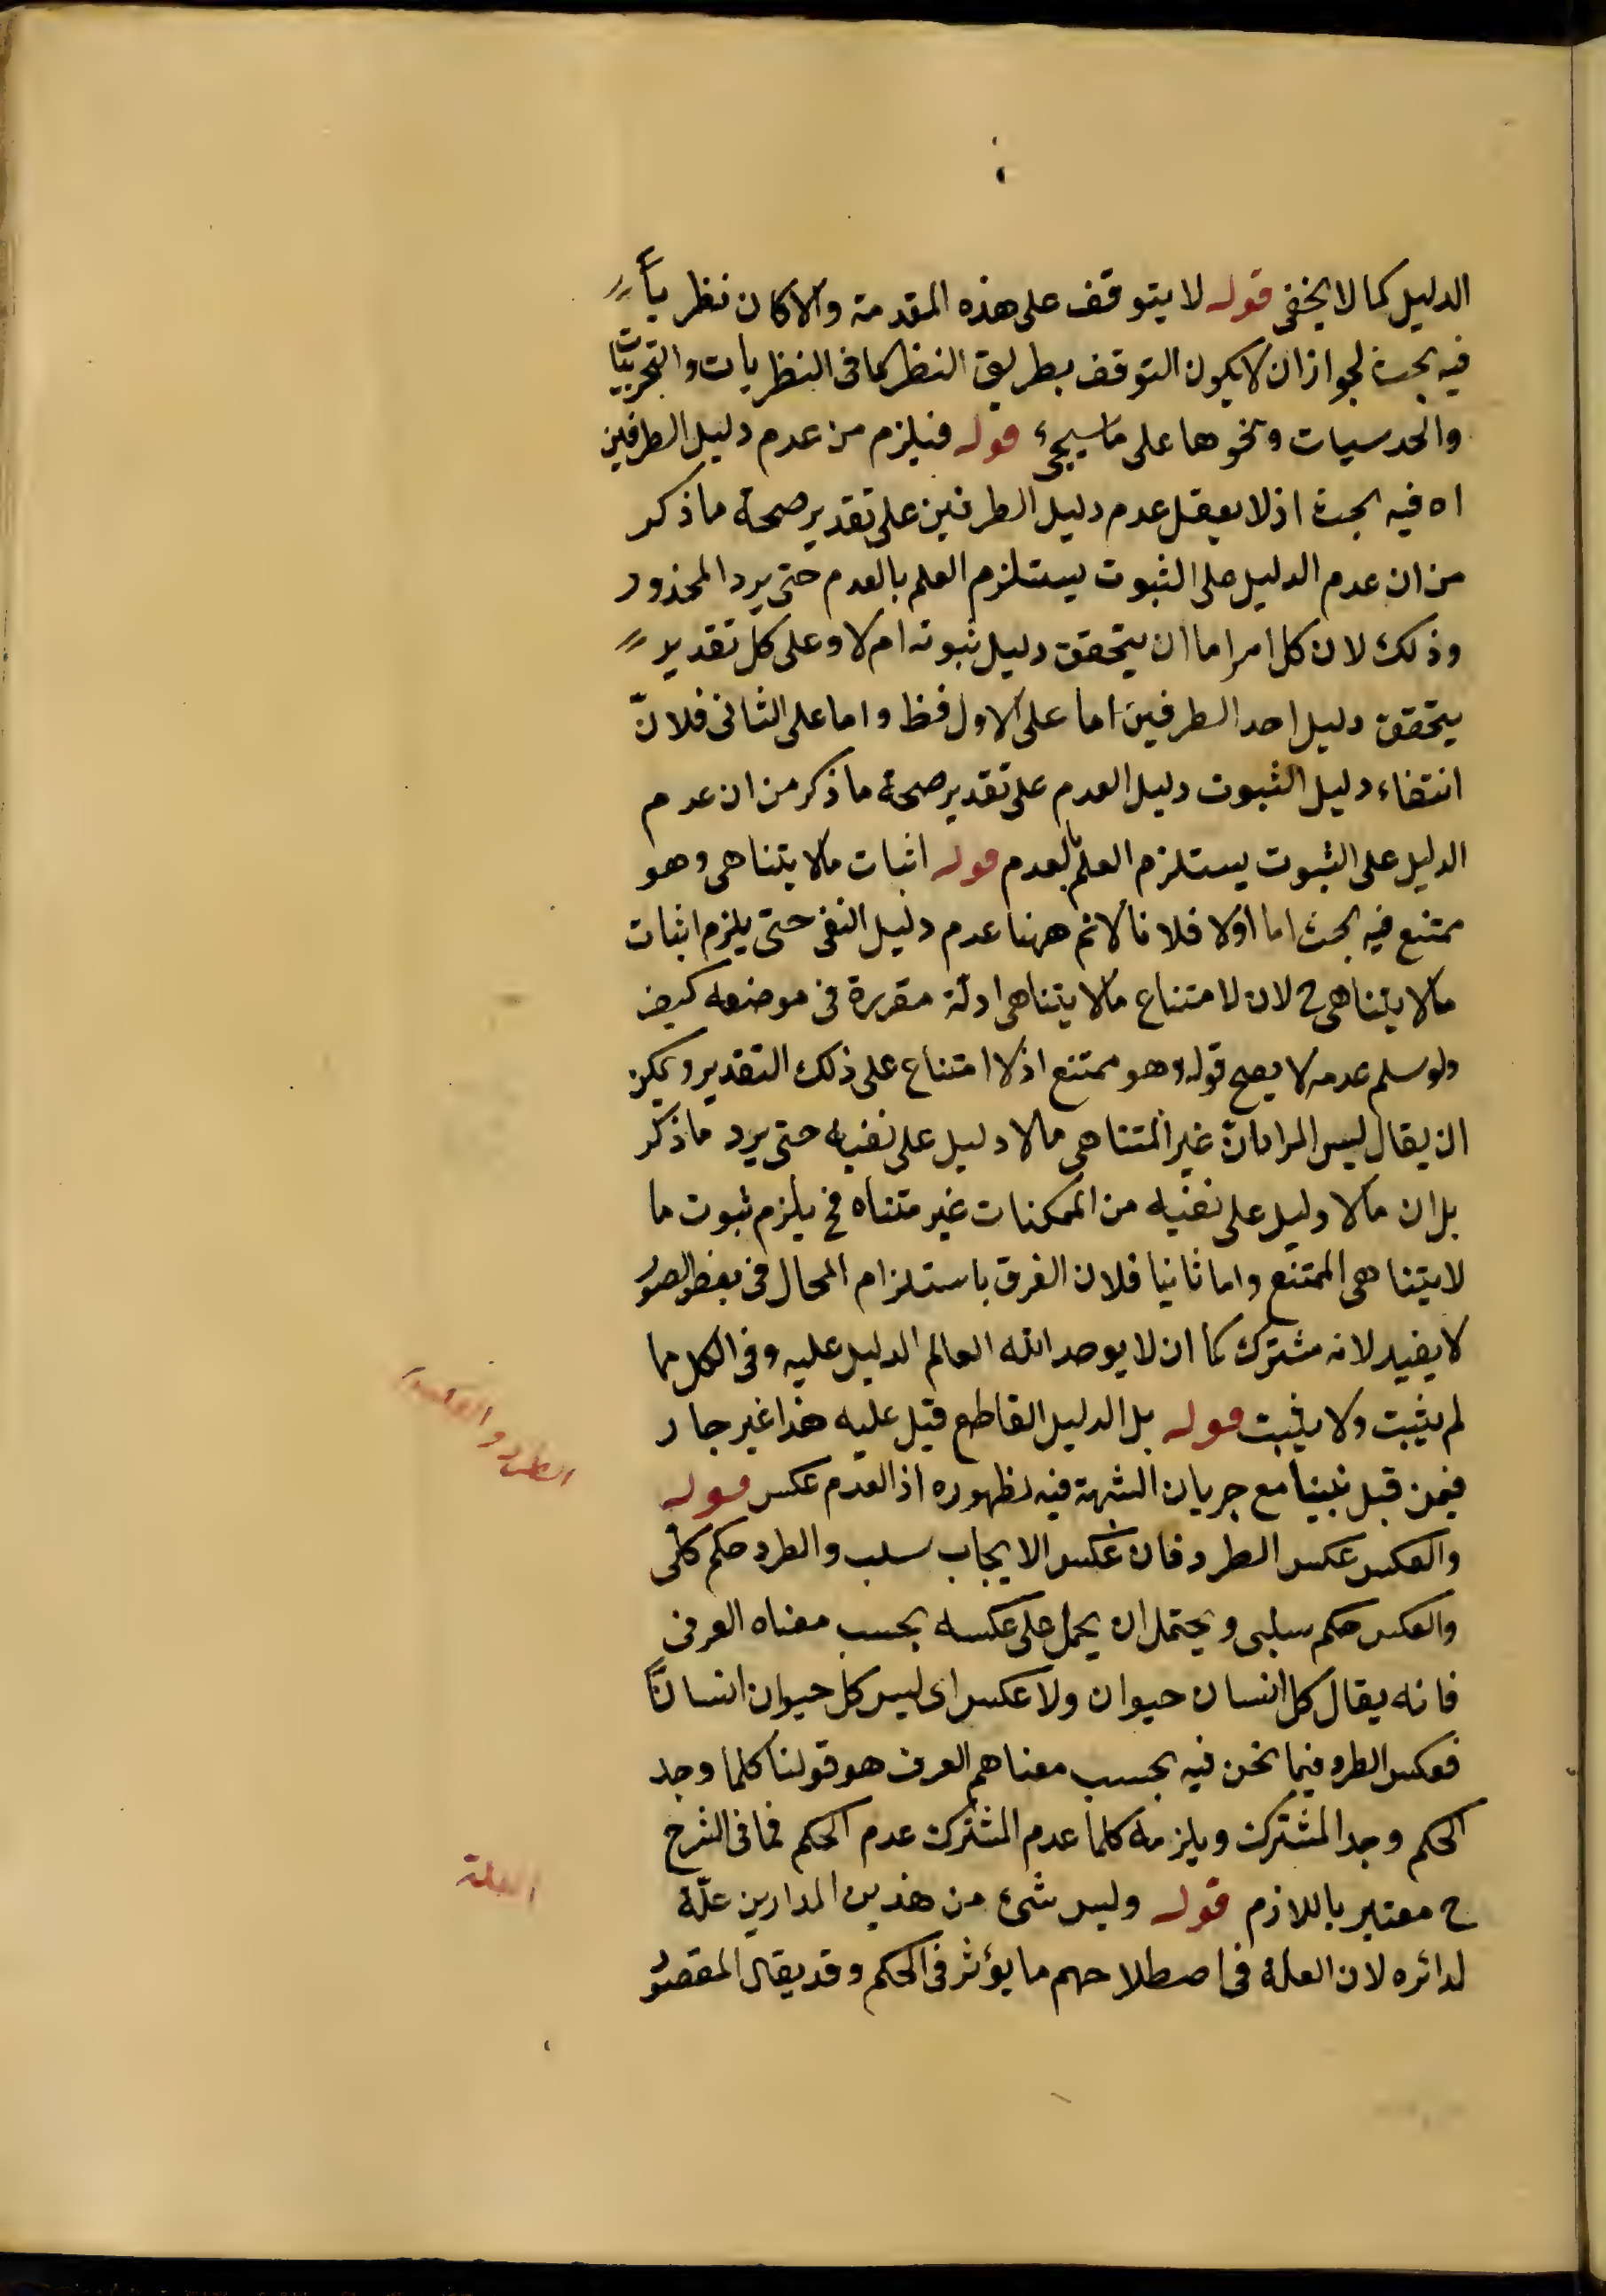 الدليل كما لا يخفى قوله لا يتوقف على هذه المقدمة والا كان نظريا
فيه بحث لجواز ان لا يكون التوقف بطريق النظر كما فى النظريات والتجربيات
والحدسيات ونحوها على ما سيجىء قوله فيلزم من عدم دليل الطرفين
اه فيه بحث اذ لا يعقل عدم دليل الطرفين على تقدير صحة ما ذكر
من ان عدم الدليل على الثبوت يستلزم العلم بالعدم حتى يرد المحذور
وذلك لان كل امر اما ان يتحقق دليل ثبوته ام لا وعلى كل تقدير
يتحقق دليل احد الطرفين اما على الاول فظ واما على الثانى فلانّ
انتفاء دليل الثبوت دليل العدم على تقدير صحة ما ذكر من ان عدم
الدليل على الثبوت يستلزم العلم بالعدم قوله اثبات مالا يتناهى وهو
ممتنع فيه بحث اما اولا فلانا لانم ههنا عدم دليل النفى حتى يلزم اثبات
مالا يتناهى ح لان لامتناع مالا يتناهى ادلّة مقررة فى موضعه كيف
ولو سلم عدمه لا يصح قوله وهو ممتنع اذ لا امتناع على ذلك التقدير ويمكن
ان يقال ليس المراد ان غير المتناهى مالا دليل على نفيه حتى يرد ما ذكر
بل ان مالا دليل على نفيه من الممكنات غير متناه فح يلزم ثبوت ما
لا يتناهى الممتنع واما ثانيا فلان الفرق باستلزام المحال فى بعض الصور
لا يفيد لانه مشترك ان لا يوجد الله العالم الدليل عليه وفى الكل ما
لم يثبت ولا يثبت قوله بل الدليل القاطع قيل عليه هذا غير جار
فيمن قبل نبينا مع جريان الشبهة فيه لظهوره اذ العدم عكس قوله
والعكس عكس الطرد فان عكس الايجاب سلب والطرد حكم كلّى
والعكس حكم سلبى ويحتمل ان يحمل على عكسه بحسب معناه العرفى
فانه يقال كل انسان حيوان ولا عكس اى ليس كل حيوان انسانًا
فعكس الطرد فيما نحن فيه بحسب معناهم العرف هو قولنا كلما وجد
الحكم وجد المشترك ويلزمه كلما عدم المشترك عدم الحكم فما فى الشرح
ح معتبر باللازم قوله وليس شىء من هذين المدارين علّة
لدائره لان العلة فى اصطلاحهم ما يؤثر فى الحكم وقد يقال المقصود
الطرد والعكس
العلة